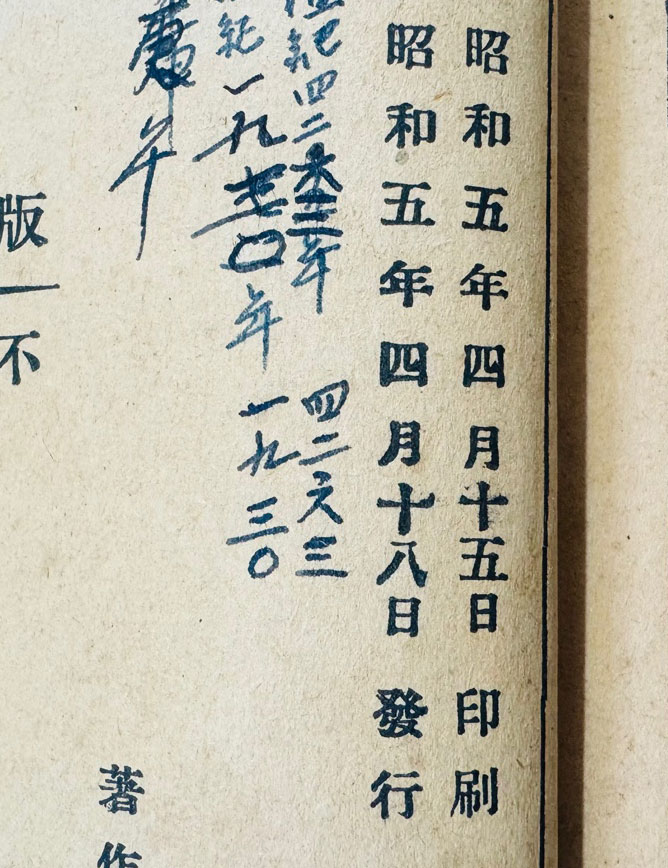 昭和五年四月十五日印刷
昭和五年四月十八日發行
紀四二
年
四二六三
紀一九
〇年
一九三〇
午
版
不
著作